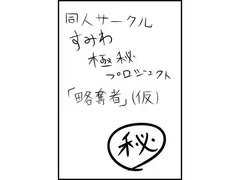 同人サークル
すみわ
極秘
プロジェクト
「略奪者」(仮)
秘